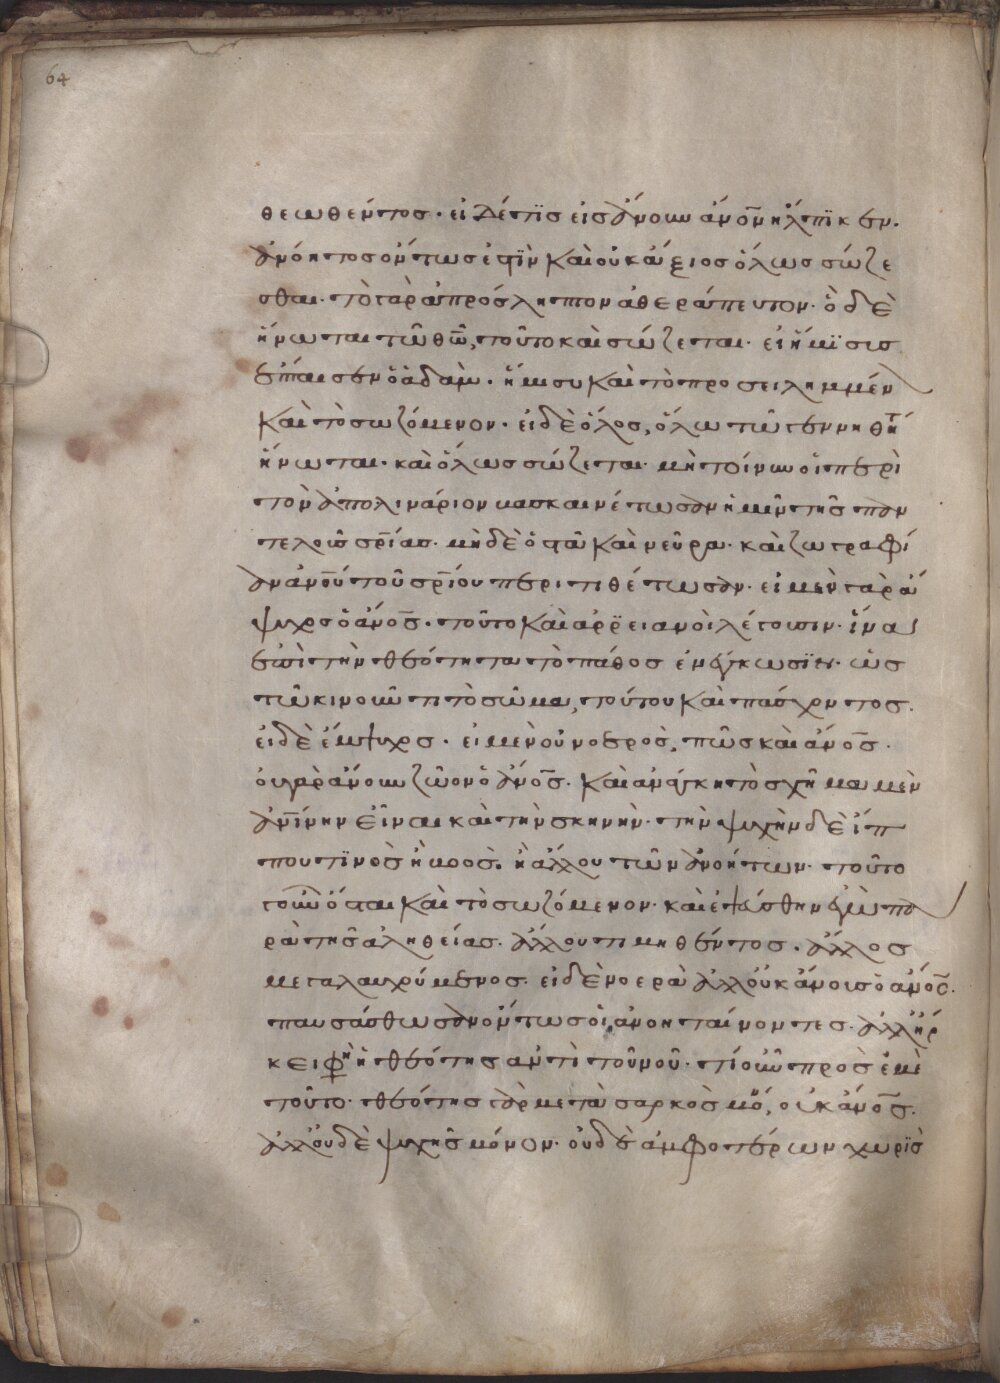 64
θεωθέντος· εἰ δέ τϊς εἰς ἄνουν ἄνον ἤλπϊκεν.
ἀνόητος ὄντως ἐστὶν καὶ οὐκ ἄξιος ὅλως σώζε
σθαι· τὸ γὰρ ἀπρόσληπτον ἀθεράπευτον· ὃ δὲ
ἥνωται τῶ θῶ, τοῦτο καὶ σώζεται· εἰ ἥμϊσις
ἔπταισεν ὁ ἀδὰμ· ἥμισυ καὶ τὸ προσειλημμέν
καὶ τὸ σωζόμενον· εἰ δὲ ὅλος, ὅλω τῶ γεννηθέ
ἥνωται· καὶ ὅλως σώζεται· μὴ τοίνυν οἱ περὶ
τὸν ἀπολινάριον βασκαινέτωσαν ἡμῖν τῆς παν
τελοῦς σρίας· μὴ δὲ ὀστᾶ καὶ νεῦρα· καὶ ζωγραφί
αν ἀνου τοῦ σρίου περιτιθέτωσαν· εἰ μὲν γὰρ ἄ
ψυχος ὁ ἄνος· τοῦτο καὶ ἀρϊειανοὶ λέγουσιν· ἵνα
ἐπὶ τὴν θεότητα τὸ πάθος ἐνέγκωσϊν· ὡς
τοῦ κινοῦντι τὸ σῶμα, τούτου καὶ πάσχοντος.
εἰ δὲ ἔμψυχος· εἰ μὲν οὐ νοερὸς, πῶς καὶ ἄνος·
οὐ γὰρ ἄνουν ζῶον ὁ ἄνος· καὶ ἀνάγκη τὸ σχῆμα μὲν
ἀνίνην εἶναι καὶ τὴν σκηνὴν· τὴν ψυχὴν δὲ ἵπ
που τϊνὸς ἢ βοὸς· ἢ ἄλλου τῶν ἀνοήτων· τοῦτο
γοῦν ἔσται καὶ τὸ σωζόμενον· καὶ ἐψεύσθην ἐγὼ πα
ρὰ τῆς ἀληθείας· ἄλλου τιμηθέντος· ἄλλος
μεγαλαυχούμενος· εἰ δὲ νοερὰ ἀλλ' οὐκ ἄνους ὁ ἄνος·
παυσάσθωσαν ὄντως οἱ ἀνοηταίνοντες· ἀλλ' ἤρ
κει φησὶν ἡ θεότης ἀντὶ τοῦ νοῦ· τί οὖν πρὸς ἐμὲ
τοῦτο· θεότης γὰρ μετὰ σαρκὸς μό, οὐκ ἄνος·
ἀλλ' οὐδὲ ψυχῆς μόνον· οὐδὲ ἀμφοτέρων χωρϊς